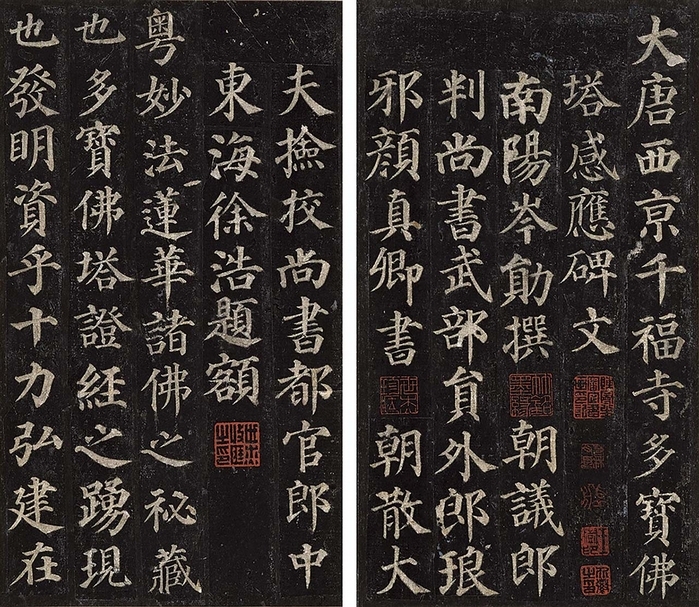 大唐西京千福寺多寶佛
塔感應碑文
南陽岑勛撰 朝議郎
判尚書武部員外郎琅
邪顏真卿書 朝散大
夫撿挍尚書都官郎中
東海徐浩題額
粤妙法蓮華諸佛之祕藏
也多寶佛塔證經之踴現
也發明資乎十力弘建在